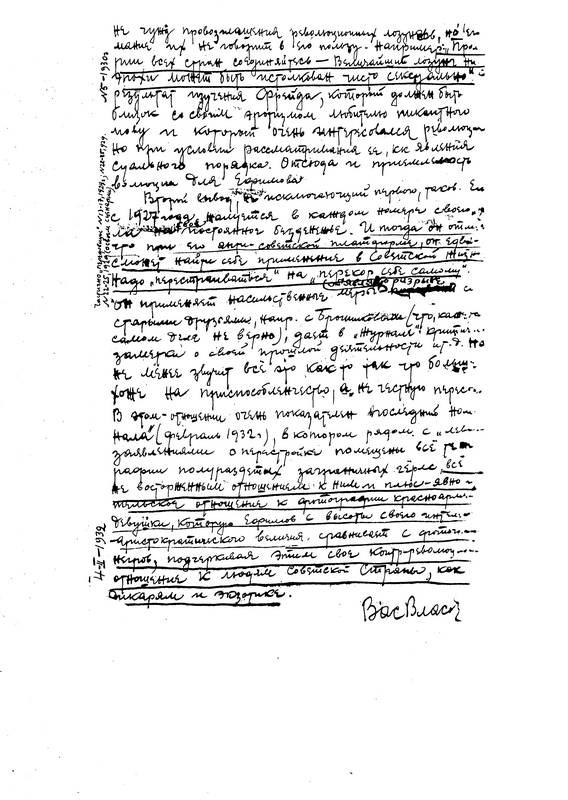 не чужд провозглашения революционных лозунгов, но
мание их не говорит в его пользу. Например: „Про-
рии всех стран соединяйтесь — Величайший лозунг на
эпохи может быть истолкован чисто сексуально"
результат изучения Фрейда, который должен быть
близок со своим эротизмом любителю пикантного
мову и который очень интересовался революци
но при условии рассматривания ее, как явления
суального порядка. Отсюда и приемлемость
волюции для Ефимова.
Второй вывод, не исключающий первого, таков.
с 1927 года жалуется в каждом номере своего
ла на постоянное безденежье. И тогда он
что при его анти-советской платформе, он едва
сможет найти себе применение в Советской жизн
Надо „перестраиваться" на „перекор себе самому"
Он применяет насильственное
старыми друзьями, напр. с (что, как
самом деле не верно), дает в „Журнал"
замерка о своей прошлой деятельности и т.д. Но
не менее звучит всё это как то так что больш
хоже на приспособленчество, а не честную перест
В этом отношении очень показателен последний ном
нала" (февраль 1932 г), в котором рядом с „
заявлениями о перестройке помещены всё те
рафии полураздетых заграничных гёрлс, всё
с восторженным отношением к ним и плюс - явно
тельское отношение к фотографии красноарм
девушки, которую Ефимов с высоты своего интел
аристократического величия сравнивает с фотог
негров, подчеркивая этим свое контр-революц
отношение к людям Советской Страны, как
дикарям и экзотике.
1932
ВасВлас
№5-1930г